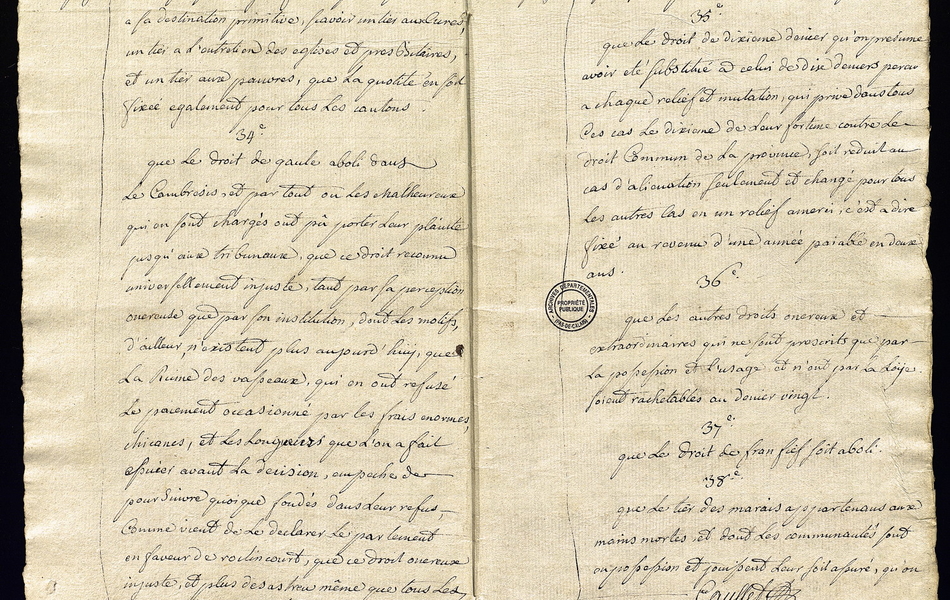 a sa destination primitive, savoir un tier aux Curés,
un tier a l'entretien des eglises et presbitaires,
et un tier aux pauvres, que la quotité en soit
fixée egalement pour tous les cantons.
34e
que le droit de gaule aboli dans
le Cambresis, et par tout ou les malheureux
qui en sont chargés ont pû porter leur plainte
jusqu'aux tribunaux, que ce droit reconnu
universellement injuste, tant par sa perception
onereuse que par son institution, dont les motifs,
d'ailleur, n'existent plus aujourd'huy, que
la Ruine des vasseaux, qui en ont refusé
le paiement occasionné par les frais enormes,
chicanes, et les longueurs que l'on a fait
essuier avant la decision, empeche de
poursuivre quoique fondés dans leur refus,
Comme vient de le declarer le parlement
en faveur de roclincourt, que ce droit onereux
injuste, et plus desastreux même que tous les
35e
que le droit de dixieme denier qu'on presume
avoir eté substitué a celui de dix deniers percu
a chaque relief et mutation, qui prive dans tous
ces cas le dixieme de leur fortune contre le
droit Commun de la province, soit reduit au
cas d'alienation seulement et changé pour tous
les autres cas en un relief c'est a dire
fixé au revenu d'une année paiable en deux
ans.
36e
que les autres droits onereux et
extraordinaires qui ne sont prescrits que par
la possession et l'usage et n'ont par la Loix
soient rachetables au denier vingt.
37e
que le droit de fran fief soit aboli.
38e
que le tier des marais appartenans aux
mains mortes et dont les communautés sont
en possession et jouissent leur soit assuré, qu'on
ARCHIVES DÉPARTEMENTALES
PROPRIÉTÉ
PUBLIQUE
PAS-DE-CALAIS